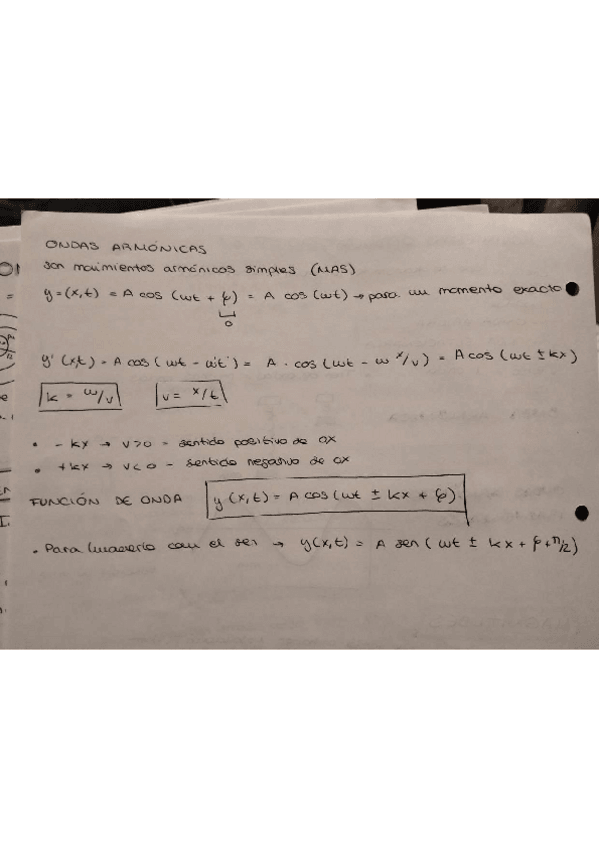 ONDAS ARMÓNICAS
son movimientos armónicos simples (MAS)
y=(x,t) = A cos (wt + φ) = A cos (wt) → para un momento exacto
0
y'(x,t) = A cos (wt - wt') = A · cos (wt - w x/v) = A cos (wt ± kx)
k = w/v v = x/t
• - kx → v>0 = sentido positivo de OX
• + kx → v<0 - sentido negativo de OX
FUNCIÓN DE ONDA y (x,t) = A cos (wt ± kx + φ)
• Para hacerlo con el sen → y(x,t) = A sen ( wt ± kx + φ + π/2)